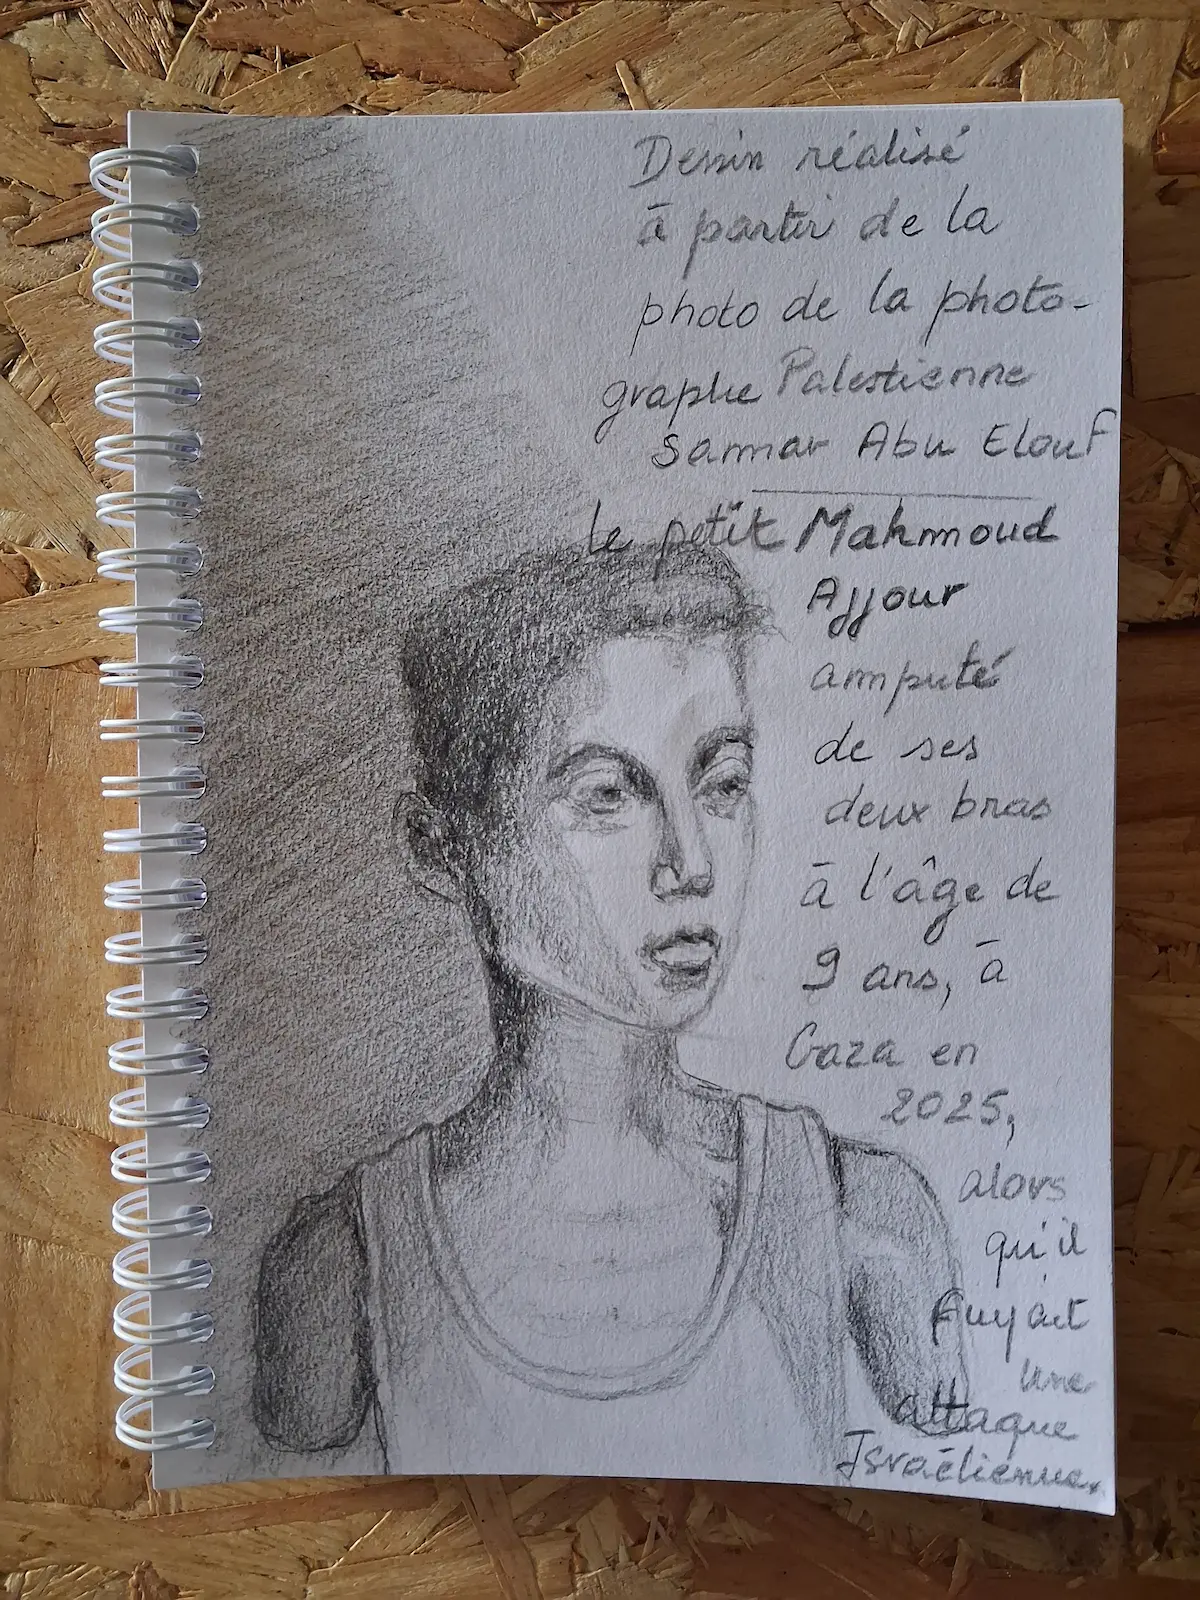 Dessin réalisé
à partir de la
photo de la photo-
graphe Palestienne
Sammar Abu Elouf
le petit Mahmoud
Ajjour
amputé
de ses
deux bras
à l'âge de
9 ans, à
Gaza en
2025,
alors
qu'il
fuyait
une
attaque
Israélienne.